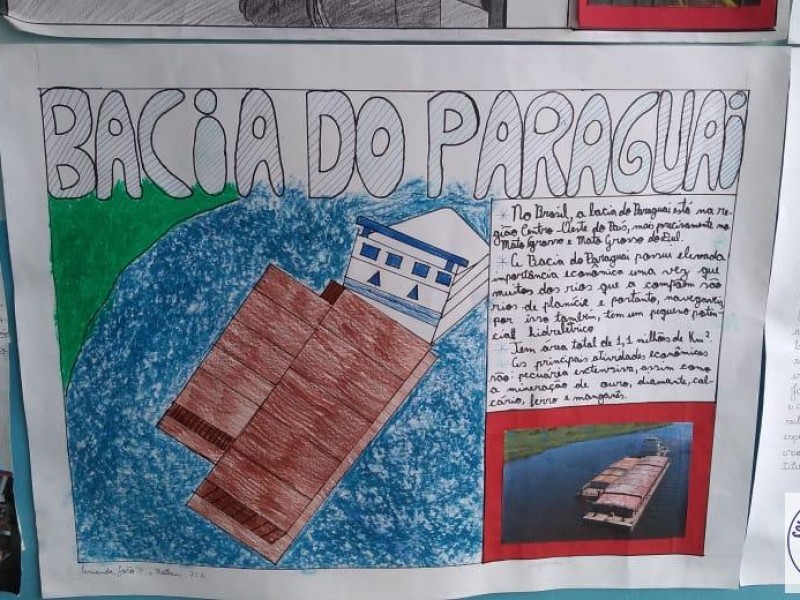 BACIA DO PARAGUAI
* No Brasil, a bacia do Paraguai está na re-
gião Centro-Oeste do País, mais precisamente no
Mato Grosso e Mato Grosso do Sul.
* A Bacia do Paraguai possui elevada
importância econômica uma vez que
muitos dos rios que a compõm são
rios de planície e portanto, navegáveis
por isso também, tem um pequeno poten-
cial hidrelétrico
* Tem área total de 1,1 milhões de Km².
As principais atividades econômicas
são: pecuária extensiva, assim como
a mineração de ouro, diamante, cal-
cário, ferro e manganês.
João